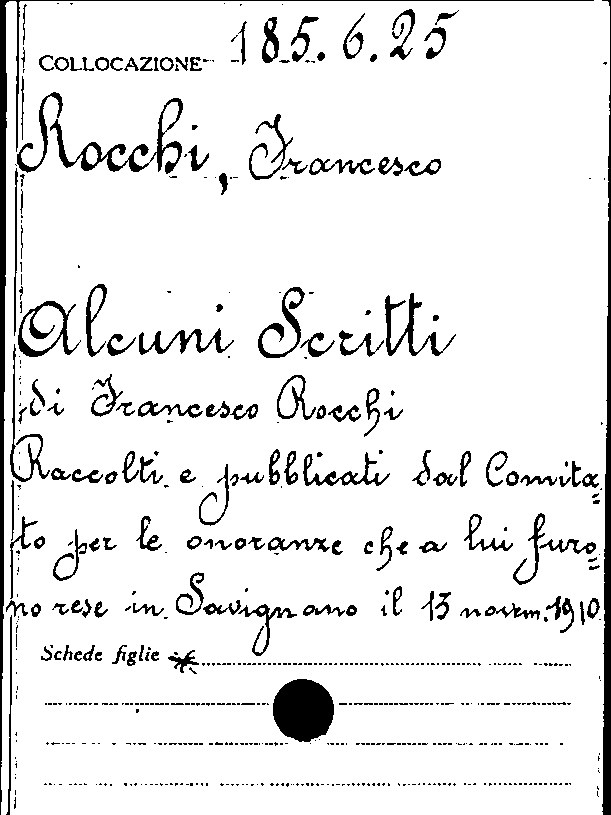 COLLOCAZIONE 185.6.25
Rocchi, Francesco
Alcuni Scritti
di Francesco Rocchi
Raccolti e pubblicati dal Comita=
to per le onoranze che a lui furo=
no rese in Savignano il 13 novem. 1910
Schede figlie *